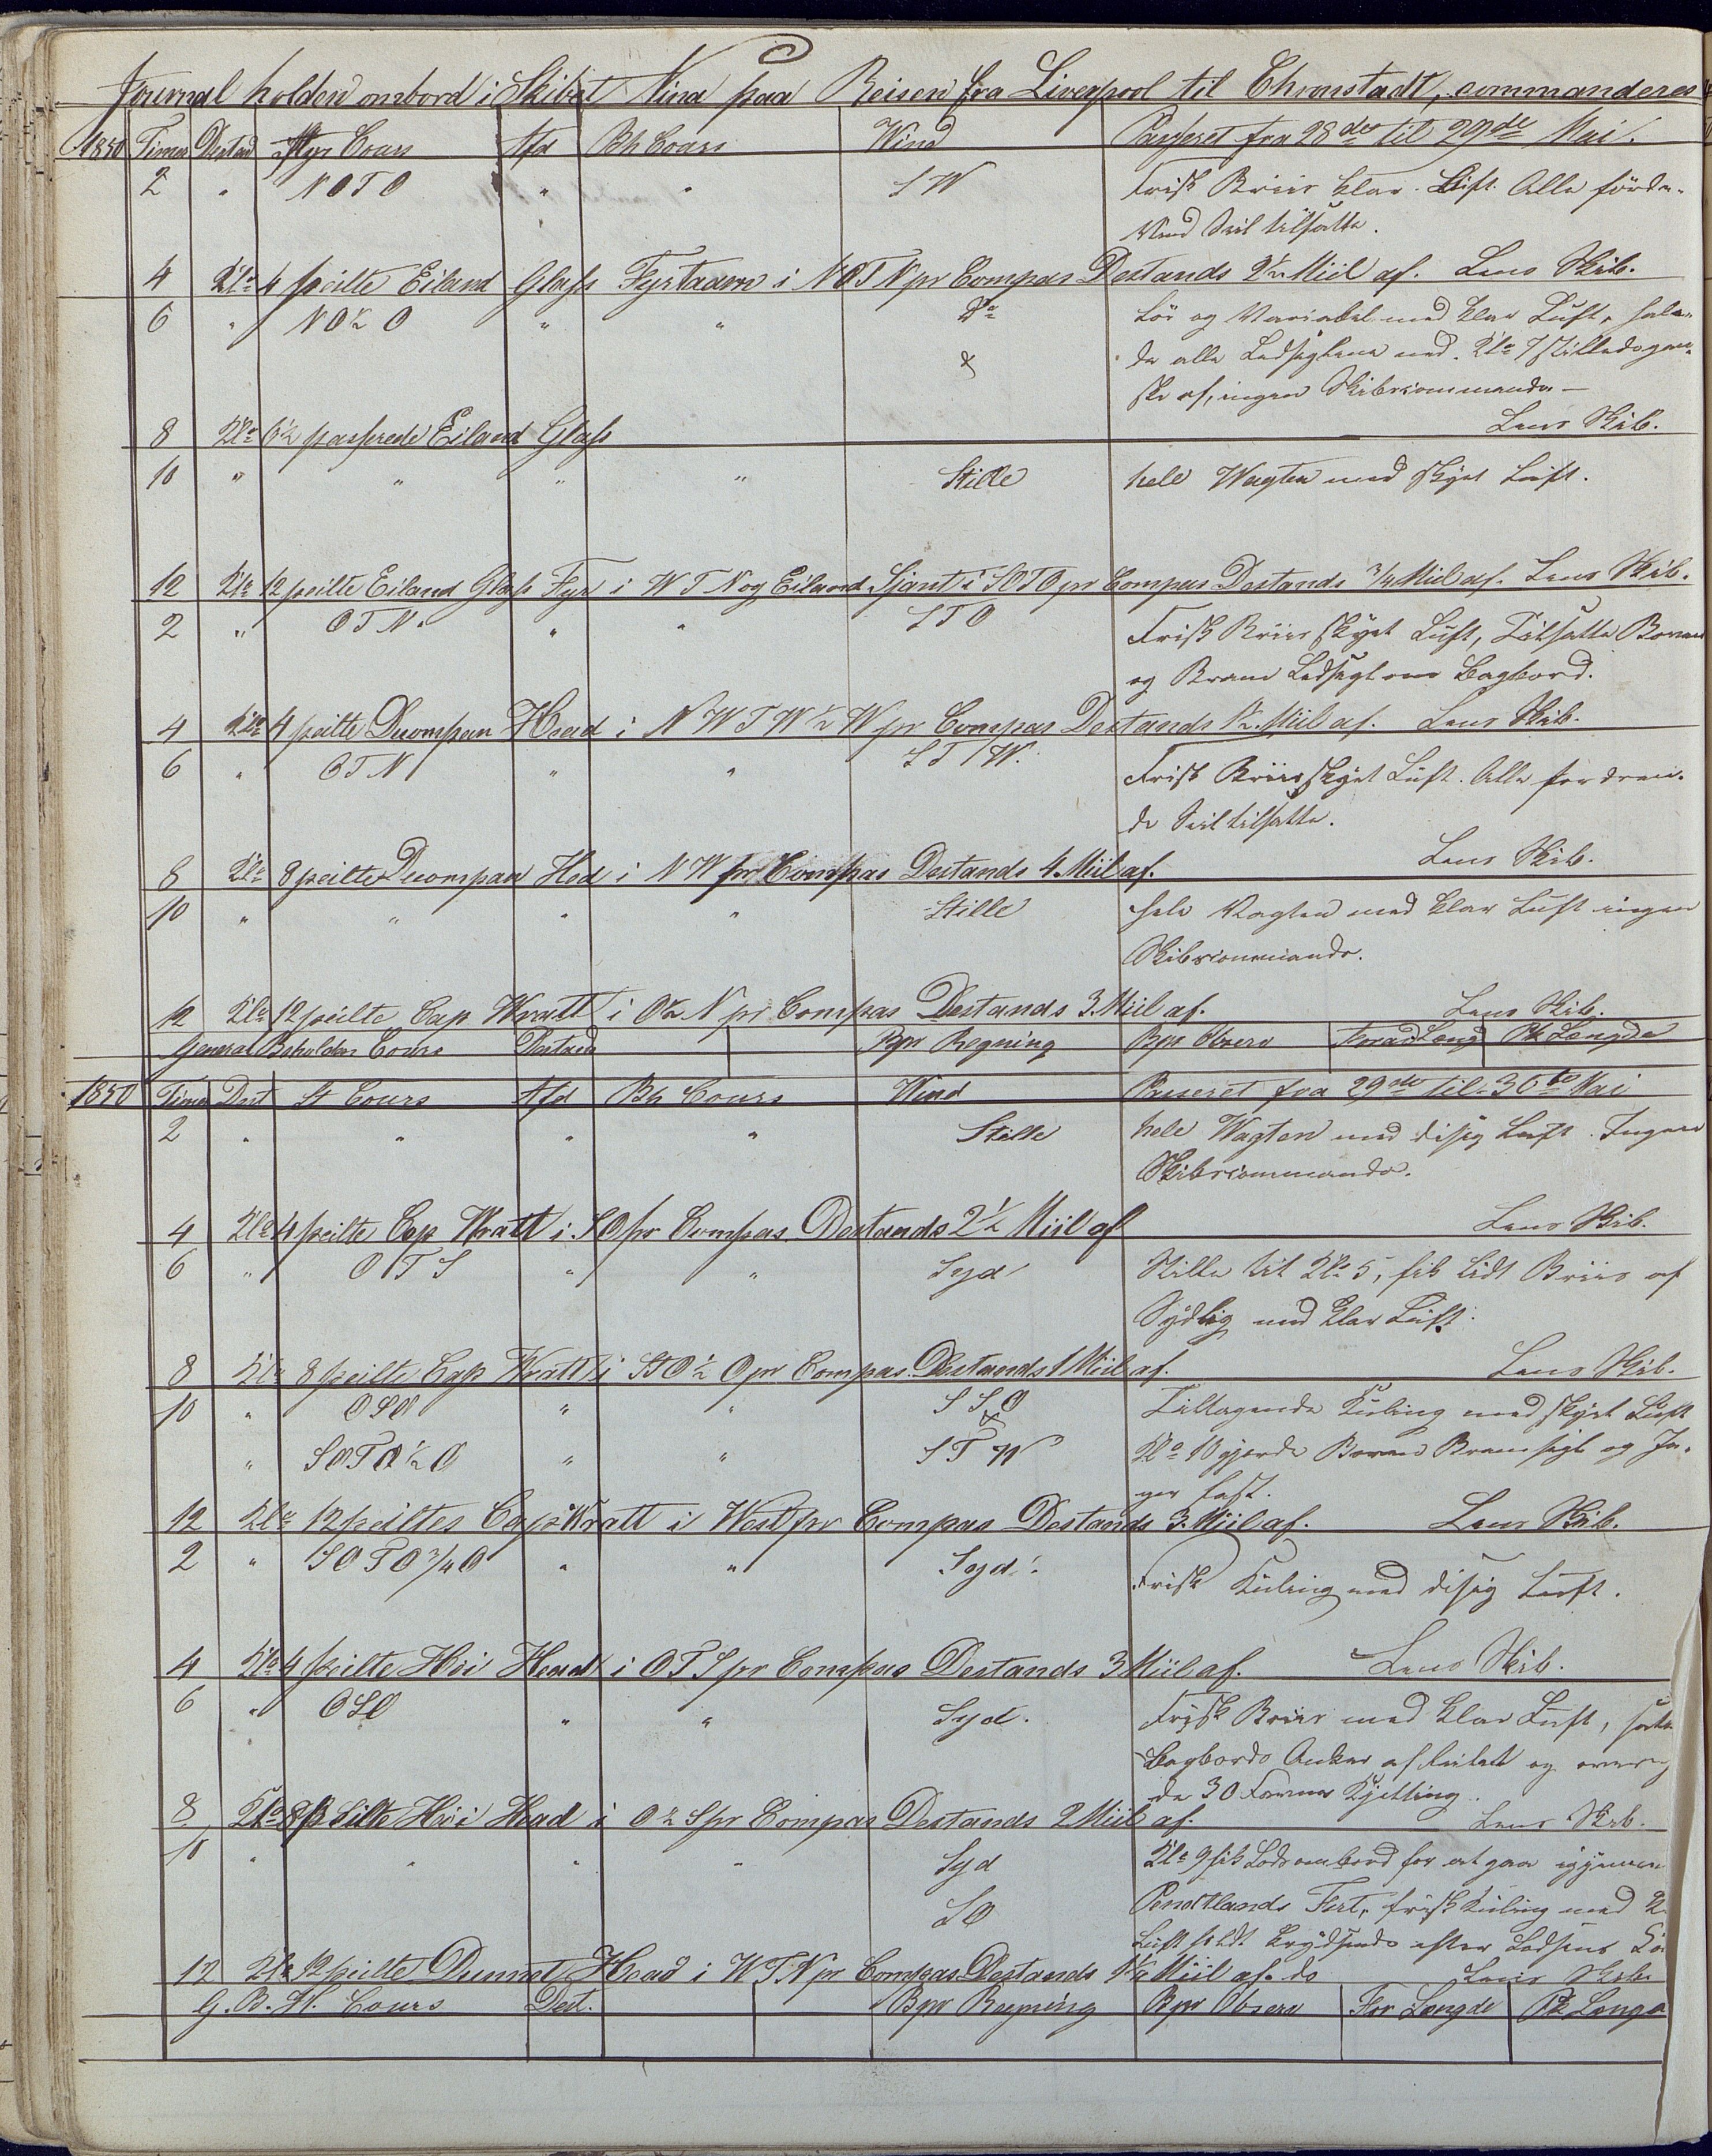 Journal holden ombord i Skibet Nina paa Reisen fra Liverpool til Chronstadt, commanderes
1850 Timer Destad Styr Cours Afd Bh Cours Wind Passeret fra 28de til 29de Mai.
2 " NOTO " " SW Frisk Briis klar Luft. Alle förde-
rend Seil tilsatte.
4 Klo 4 peilte Eiland Glass Fyrtaarn i NOTN pr Compas Destands 2½ Miil af. Lens Skib.
6 " NO½O " " Do Lör og Variabel med klar Luft, hale-
& de alle Ledseglene ned. Klo 7 stillede gan-
ske af, ingen Skibscommando -
8 Klo 6½ passerede Eiland Glass Lens Skib.
10 " " " " Stille hele Wagten med skyet Luft.
12 Klo 12 peilte Eiland Glass Fyr i WTN og Eiland Sjant i SOTO pr Compas Destands 3/4 Miil af. Lens Skib.
2 " OTN. " " STO Frisk Briis skyet Luft, Tilsatte Boven
og Bram Ledsegl om Bagbord.
4 Klo 4 peilte Duompan Head i NWTW½W pr Compas Destands 1½ Miil af. Lens Skib.
6 " OTN " " STW. Frisk Briis skyet Luft. Alle fordren-
de Seil tilsatte.
8 Klo 8 peilte Duompan Hed i NW pr Compas Destands 4 Miil af. Lens Skib.
10 " " " " Stille hele Vagten med klar Luft ingen
Skibscommando.
12 Klo 12 peilte Cap Wratt i O½N pr Compas Destands 3 Miil af. Lens Skib.
General Beholden Cours Destad Bpr Regning Bpr Observ Forad Læng Pk Længde
1850 Timer Dest St Cours Afd Bh Cours Wind Passeret fra 29de til 30te Mai
2 " " " " Stille hele Wagten med disig Luft. Ingen
Skibscommando.
4 Klo 4 peilte Cap Wratt i SO pr Compas Destands 2½ Miil af Lens Skib.
6 " OTS " " Syd Stille til Klo 5, fik lidt Briis af
Sydlig med klar Luft.
8 Klo 8 peilte Cap Wratt i StO½O pr Compas Destands 1 Miil af. Lens Skib.
10 " OSO " " SSO Tiltagende Kuling med skyet Luft
&
" SOTO½O " " STW Klo 10 gjorde Boven Bramsegl og Ja-
ger fast.
12 Klo 12 peiltes Cap Wratt i West pr Compas Destands 3 Miil af. Lens Skib.
2 " SOTO3/4O " " Syd. Frisk Kuling med disig Luft.
4 Klo 4 peilte Hoi Head i OTS pr Compas Destands 3 Miil af. Lens Skib.
6 " OSO " " Syd. Frisk Briis med klar Luft, satte
Bagbords Anker af
de 30 Favner Kjetting.
8 Klo 8 peilte Hoi Head i O½S pr Compas Destands 2 Miil af. Lens Skib.
10 " " " " Syd Klo 9 fik Lods ombord for at gaa igjennem
SO Pendtlands Firt, frisk Kuling med
Luft holdt krydsende efter Lodsens
12 Klo 12 peilte Dunnet Head i WTN pr Compas Destands 1½ Miil af. do Lens Skib.
G. B. H. Cours Dest. Bpr Regning Bpr Observ For Længde Pk Længd